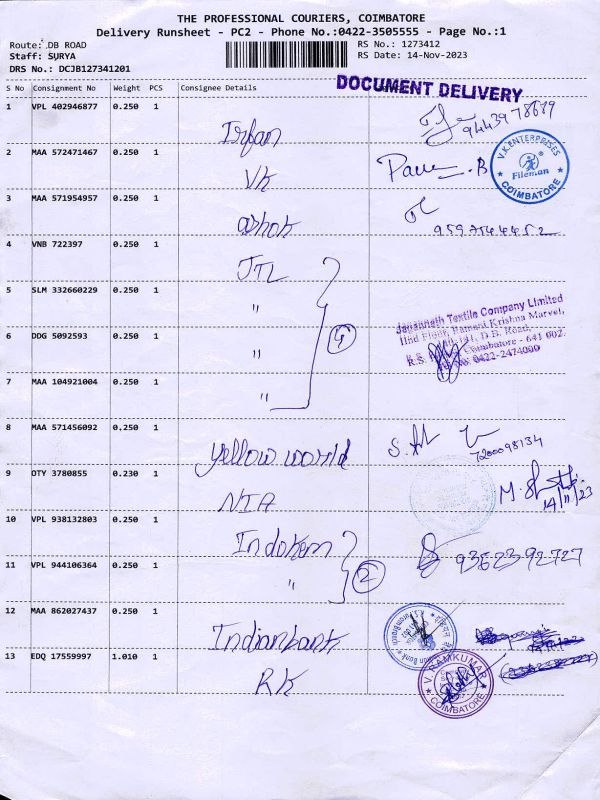 THE PROFESSIONAL COURIERS, COIMBATORE
Delivery Runsheet - PC2 - Phone No.:0422-3505555 - Page No.:1
Route: DB ROAD
RS No.: 1273412
Staff: SURYA
RS Date: 14-Nov-2023
DRS No.: DCJB127341201
DOCUMENT DELIVERY
S No Consignment No Weight PCS Consignee Details
1 VPL 402946877 0.250 1 Irfan
2 MAA 572471467 0.250 1 VK
V.K.ENTERPRISES
Fileman
COIMBATORE
3 MAA 571954957 0.250 1 ashok
4 VNB 722397 0.250 1 JTL
5 SLM 332660229 0.250 1 "
6 DDG 5092593 0.250 1 " 4
Jagannath Textile Company Limited
IInd Floor, Ramani Krishna Marvel,
D.B. Road,
Coimbatore - 641 002.
0422-2474000
7 MAA 104921004 0.250 1 "
8 MAA 571456092 0.250 1 yellow world
7200098134
9 OTY 3780855 0.230 1 NIA
14/11/23
10 VPL 938132803 0.250 1 Indokem
9362392727
11 VPL 944106364 0.250 1 " 2
12 MAA 862027437 0.250 1 Indianbank
13 EDQ 17559997 1.010 1 RK
V. RAMKUMAR
COIMBATORE